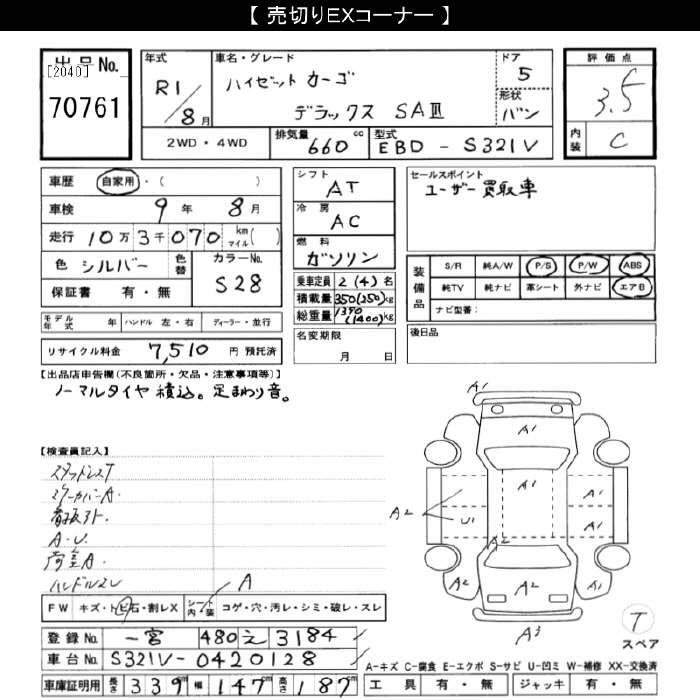 【 売切りEXコーナー 】
出品No.
[2040]
70761
年式
R1/8月
車名・グレード
ハイゼット カーゴ
デラックス SAⅢ
ドア
5
形状
バン
評価点
3.5
内装
C
2WD・4WD
排気量 660 cc
型式 EBD - S321V
車歴 自家用・( )
車検 9年 8月
走行 10万3千070 km マイル( )
色 シルバー 色替
カラーNo. S28
保証書 有・無
シフト
AT
冷房
AC
燃料
ガソリン
乗車定員 2 (4) 名
積載量 350(250)kg
総重量 1390(1400)kg
名変期限
月 日
セールスポイント
ユーザー買取車
装備品
S/R 純A/W P/S P/W ABS
純TV 純ナビ 革シート 外ナビ エアB
ナビ型番:
後日品
モデル年式 年 ハンドル 左・右 ディーラー・並行
リサイクル料金 7,510 円 預託済
【出品店申告欄(不良箇所・欠品・注意事項等)】
ノーマルタイヤ積込。足まわり音。
【検査員記入】
スタッドレスT
A・U.
荷室A.
ハンドルスレ
FW キズ・トビ石・割レX シート内装 コゲ・穴・汚レ・シミ・破レ・スレ
A
A1
A1
A1
A1
A1
A2
U1
A2
A2
A2
A1
A3
T
スペア
登録No. 一宮 480 え 3184
車台No. S321V-0420128
車庫証明用 長さ 339cm 幅 147cm 高さ 187cm
A-キズ C-腐食 E-エクボ S-サビ U-凹ミ W-補修 XX-交換済
工具 有・無 ジャッキ 有・無